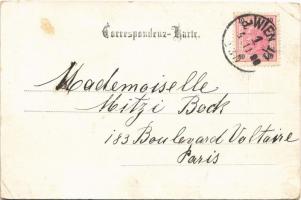 Correspondenz-Karte.
WIEN
Mademoiselle
Mitzi Bock
183 Boulevard Voltaire
Paris